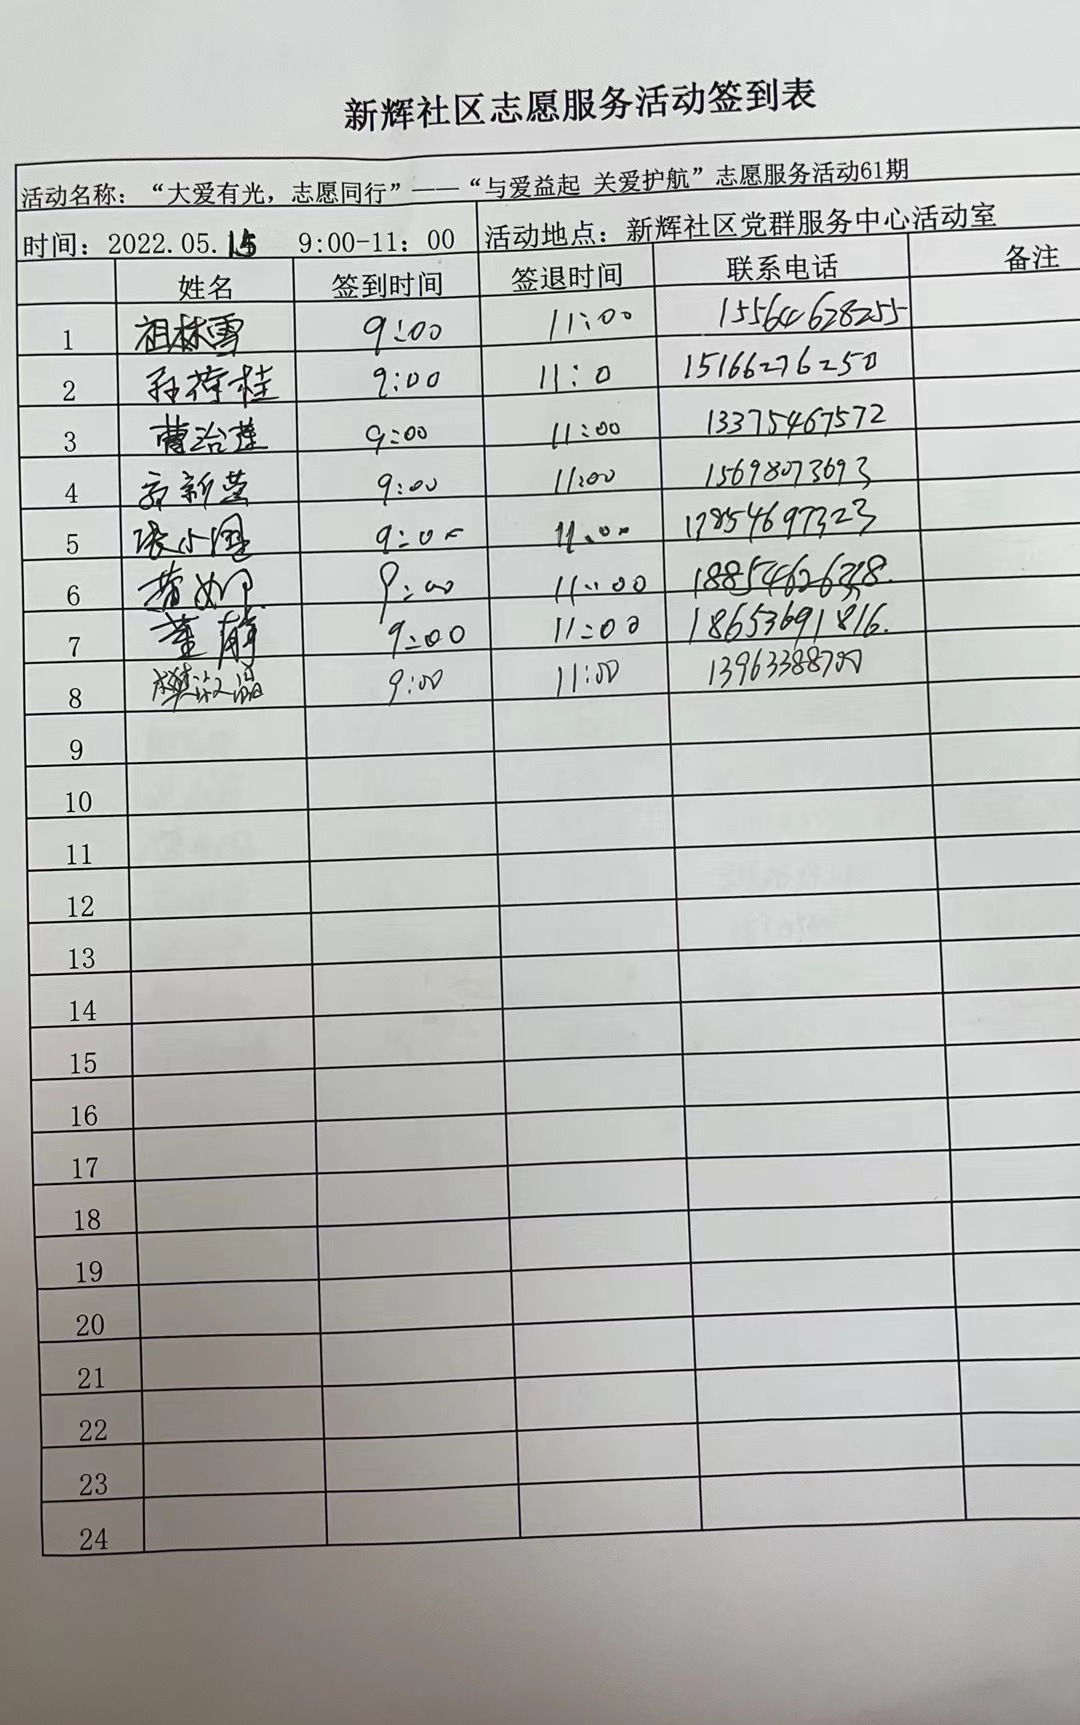 新辉社区志愿服务活动签到表
活动名称：“大爱有光，志愿同行”——“与爱益起 关爱护航”志愿服务活动61期
时间：2022.05.15 9:00-11：00 活动地点：新辉社区党群服务中心活动室
姓名 签到时间 签退时间 联系电话 备注
1 祖林雪 9:00 11:00 15564628255
2 孙荷桂 9:00 11:0 15166276250
3 曹治莲 9:00 11:00 13375467572
4 新营 9:00 11:00 15698073693
5 张小国 9:00 11:00 17854697323
6 9:00 11:00
7 董静 9:00 11:00 18653691816.
8 樊 9:00 11:00 13963388700
9
10
11
12
13
14
15
16
17
18
19
20
21
22
23
24